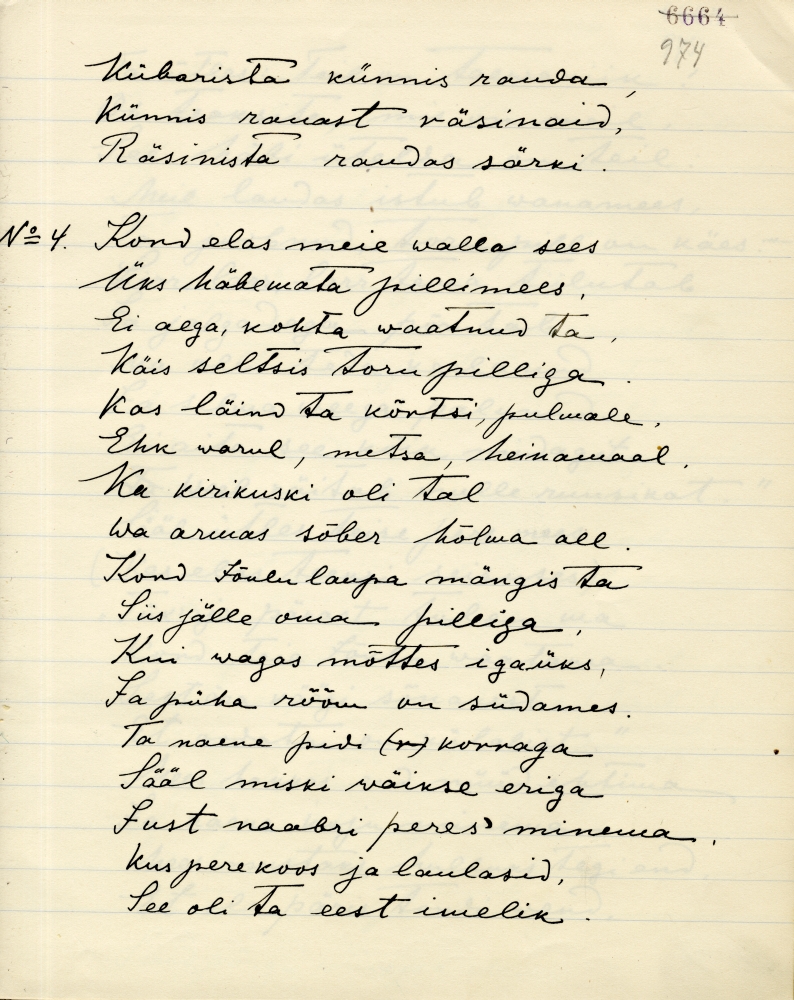 6664
974
Kübarista künnis rauda,
Künnis rauast räsinaid,
Räsinista raudas särki.
№ 4. Kord elas meie walla sees
Üks häbemata pillimees,
Ei aega, kohta waatnud ta,
Käis seltsis toru pilliga.
Kas läind ta kõrtsi, pulmale,
Ehk warul, metsa, heinamaal.
Ka kirikuski oli tal
Wa armas sõber hõlma all.
Kord Jõulu laupa mängis ta
Siis jälle oma pilliga,
Kui wagas mõttes igaüks,
Ja püha rõõm on südames.
Ta naene pidi (r) korraga
Sääl miski wäikse eriga
Just naabri peres' minema,
Kus pere koos ja laulasid,
See oli ta eest imelik.